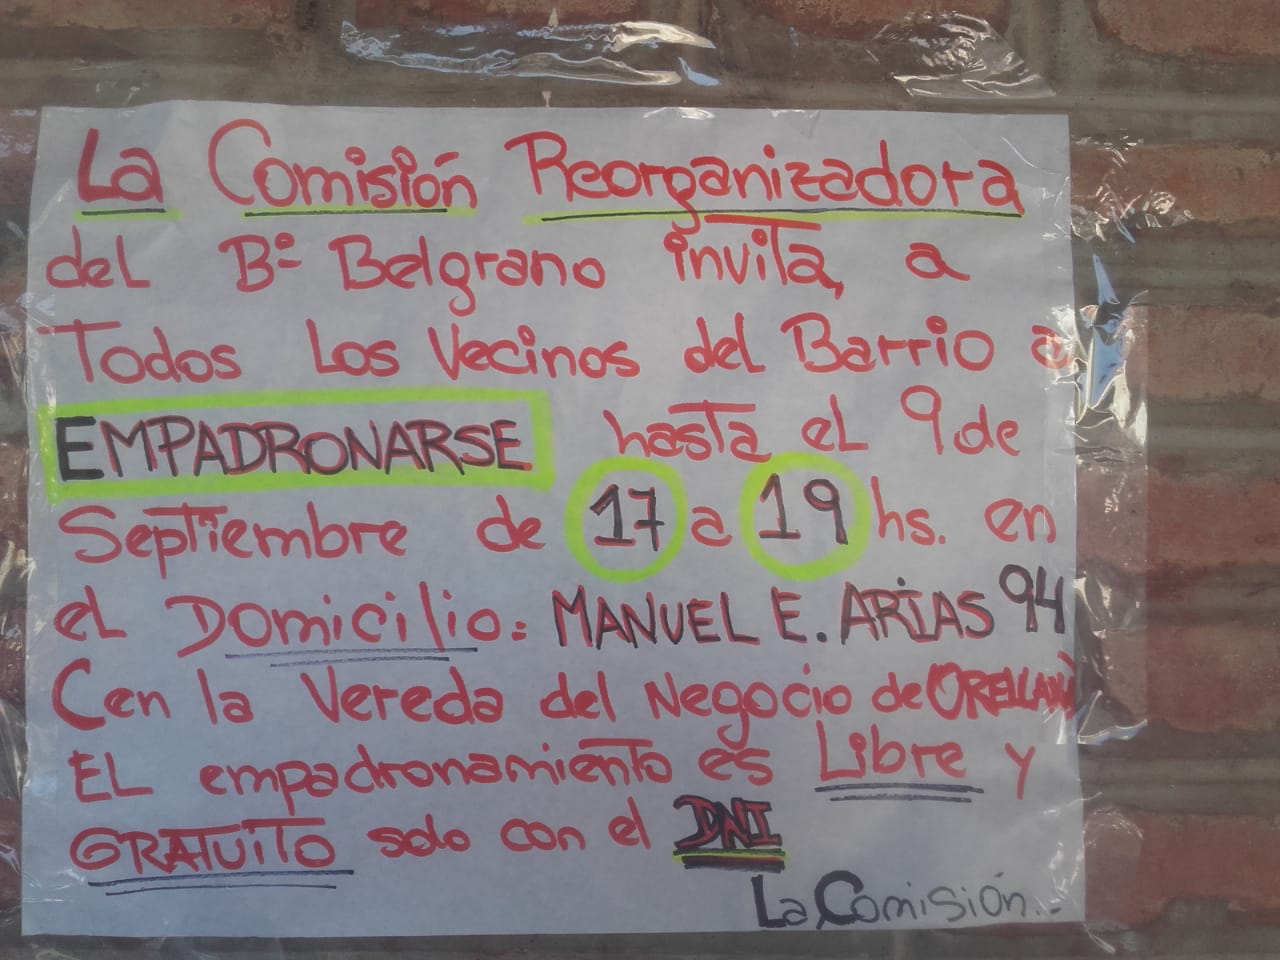 La Comisión Reorganizadora
del Bº Belgrano invita, a
Todos Los Vecinos del Barrio a
EMPADRONARSE hasta el 9 de
Septiembre de 17 a 19 hs. en
el Domicilio: MANUEL E. ARIAS 94
(en la Vereda del Negocio de ORELLANA)
EL empadronamiento es Libre y
GRATUITO solo con el DNI
La Comisión.-